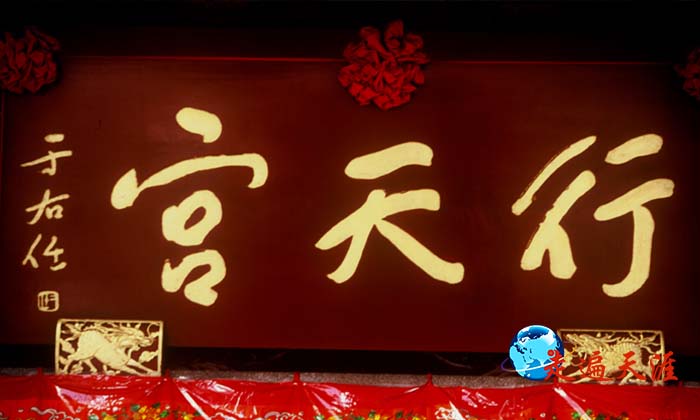 行天宮
于右任
走遍天涯